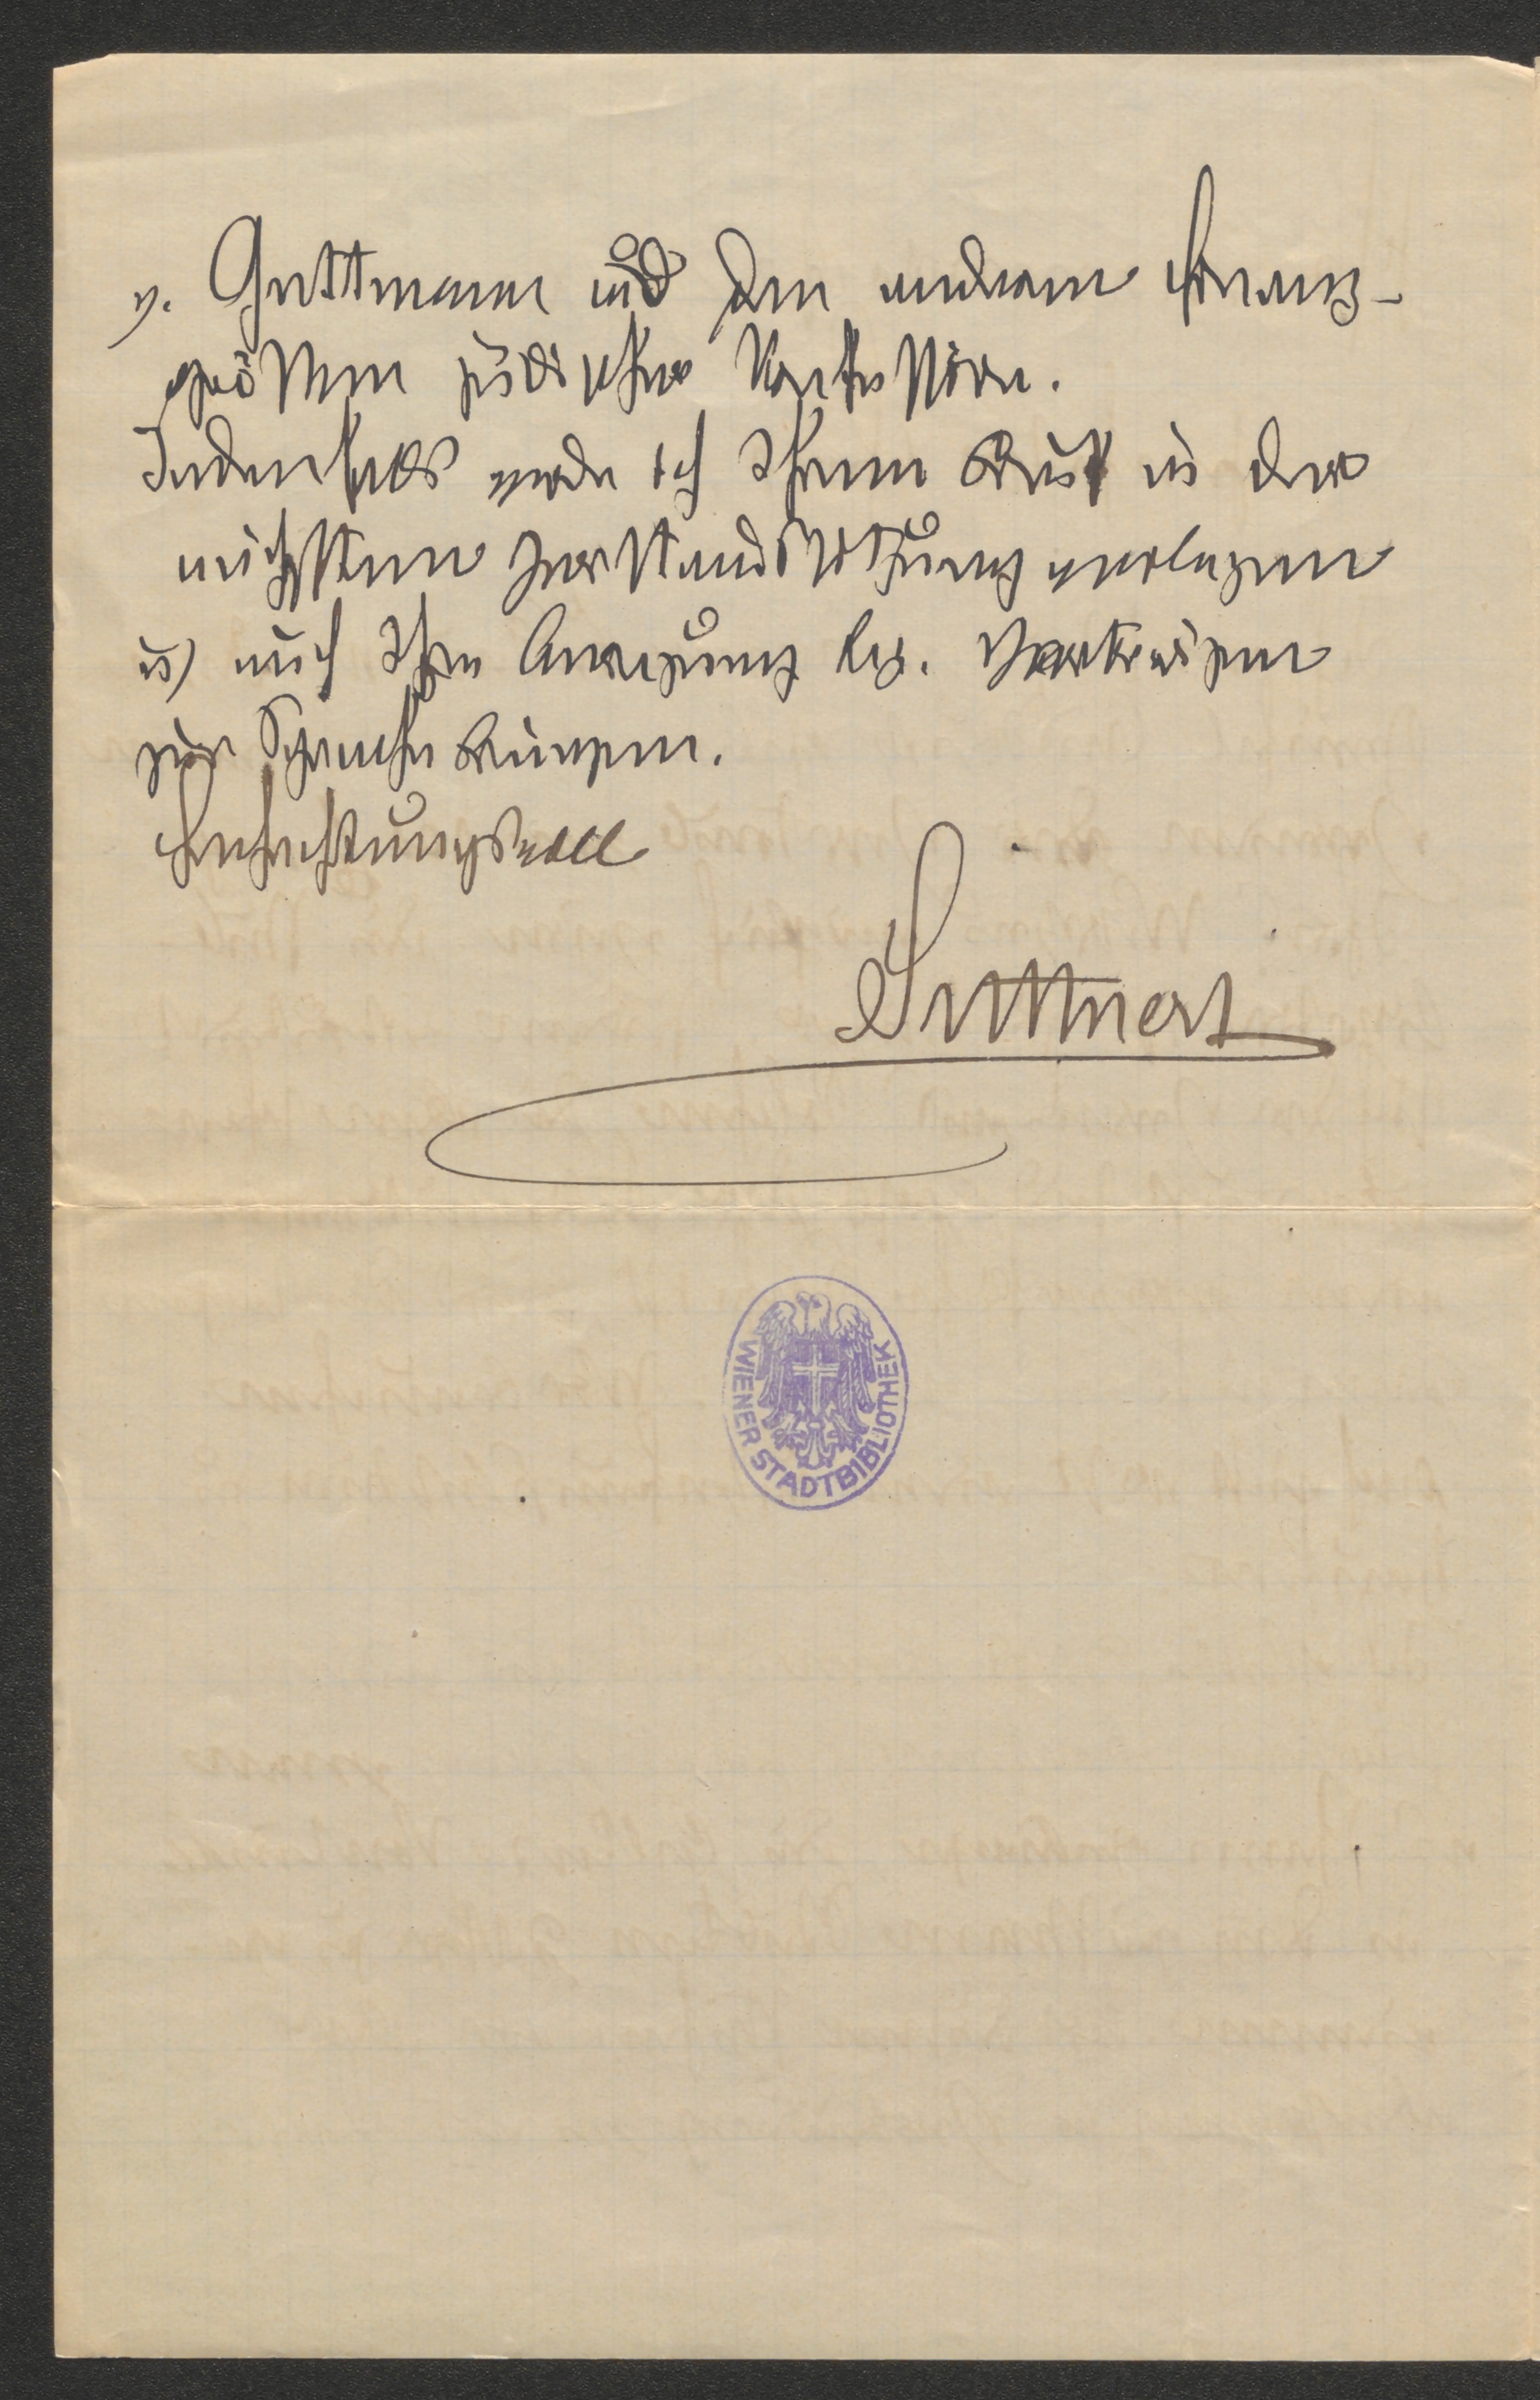 v. Guttmann und den anderen Finanz-
größen jüdischer Konfession.
Jedenfalls werde ich Ihren Brief in der
nächsten Vorstandssitzung vorlegen
u) auch Ihre Anregung bez. Vorträgen
zur Sprache bringen.
Hochachtungsvoll
Suttner
WIENER STADTBIBLIOTHEK